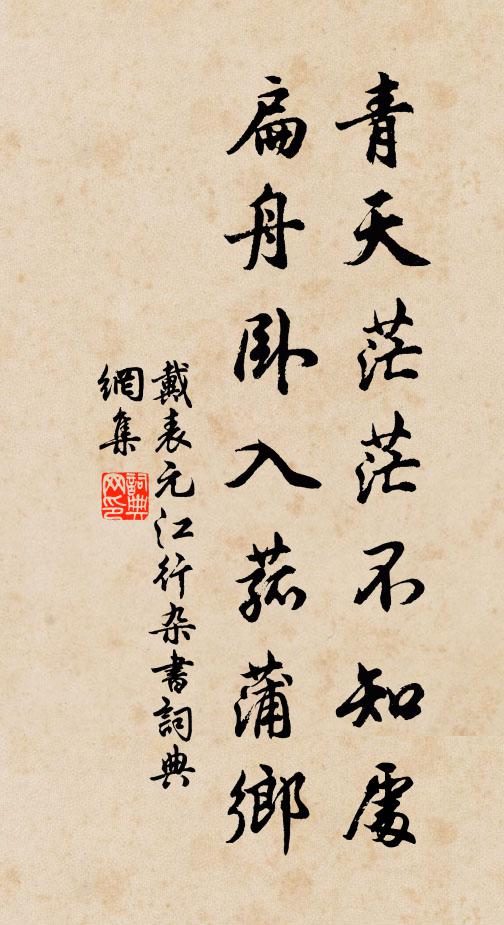 青天茫茫不知處
扁舟卧入菰蒲鄉
戴表元江行杂書詞典
網集
詞典網印